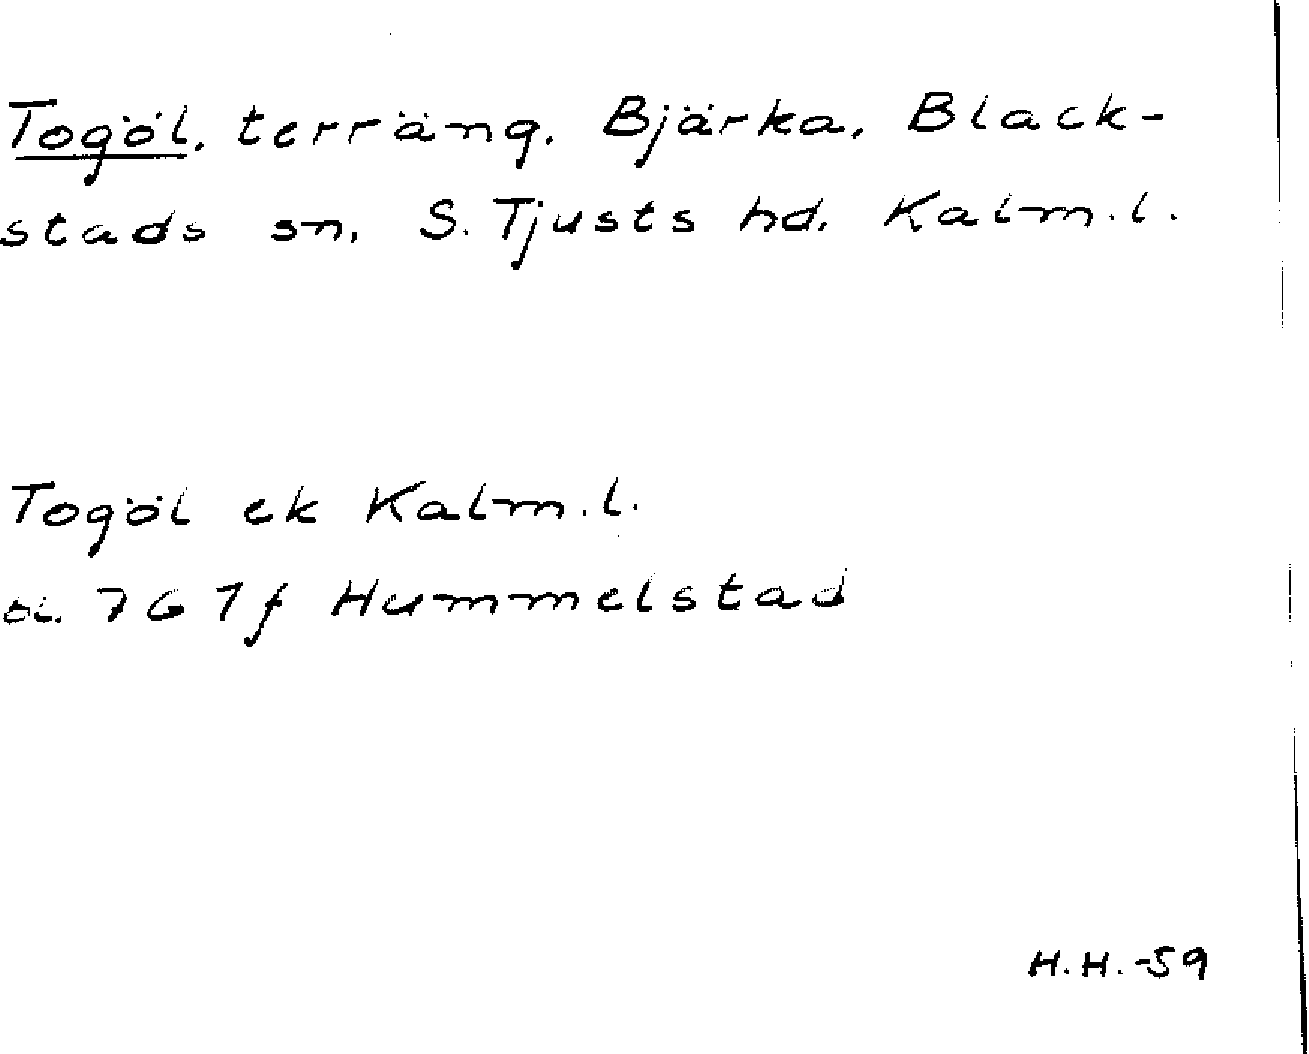 Togöl, terräng, Bjärka, Black-
stads sn, S. Tjusts hd, Kalm. l.
Togöl ek Kalm. l.
bl. 7G 7f Hummelstad
H.H. -59